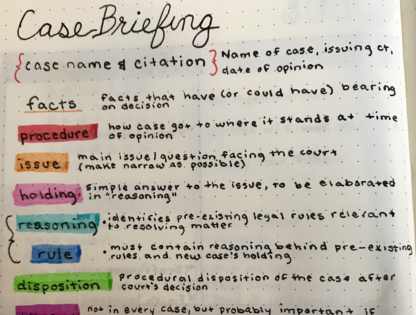 Case Briefing
{case name & citation} Name of case, issuing ct,
date of opinion
facts facts that have (or could have) bearing
on decision
procedure how case got to where it stands at time
of opinion
issue main issue/question facing the court
(make narrow as possible)
holding simple answer to the issue, to be elaborated
in "reasoning"
reasoning • identifies pre-existing legal rules relevant
to resolving matter
rule • must contain reasoning behind pre-existing
rules and new case's holding
disposition procedural disposition of the case after
court's decision
not in every case, but probably important if